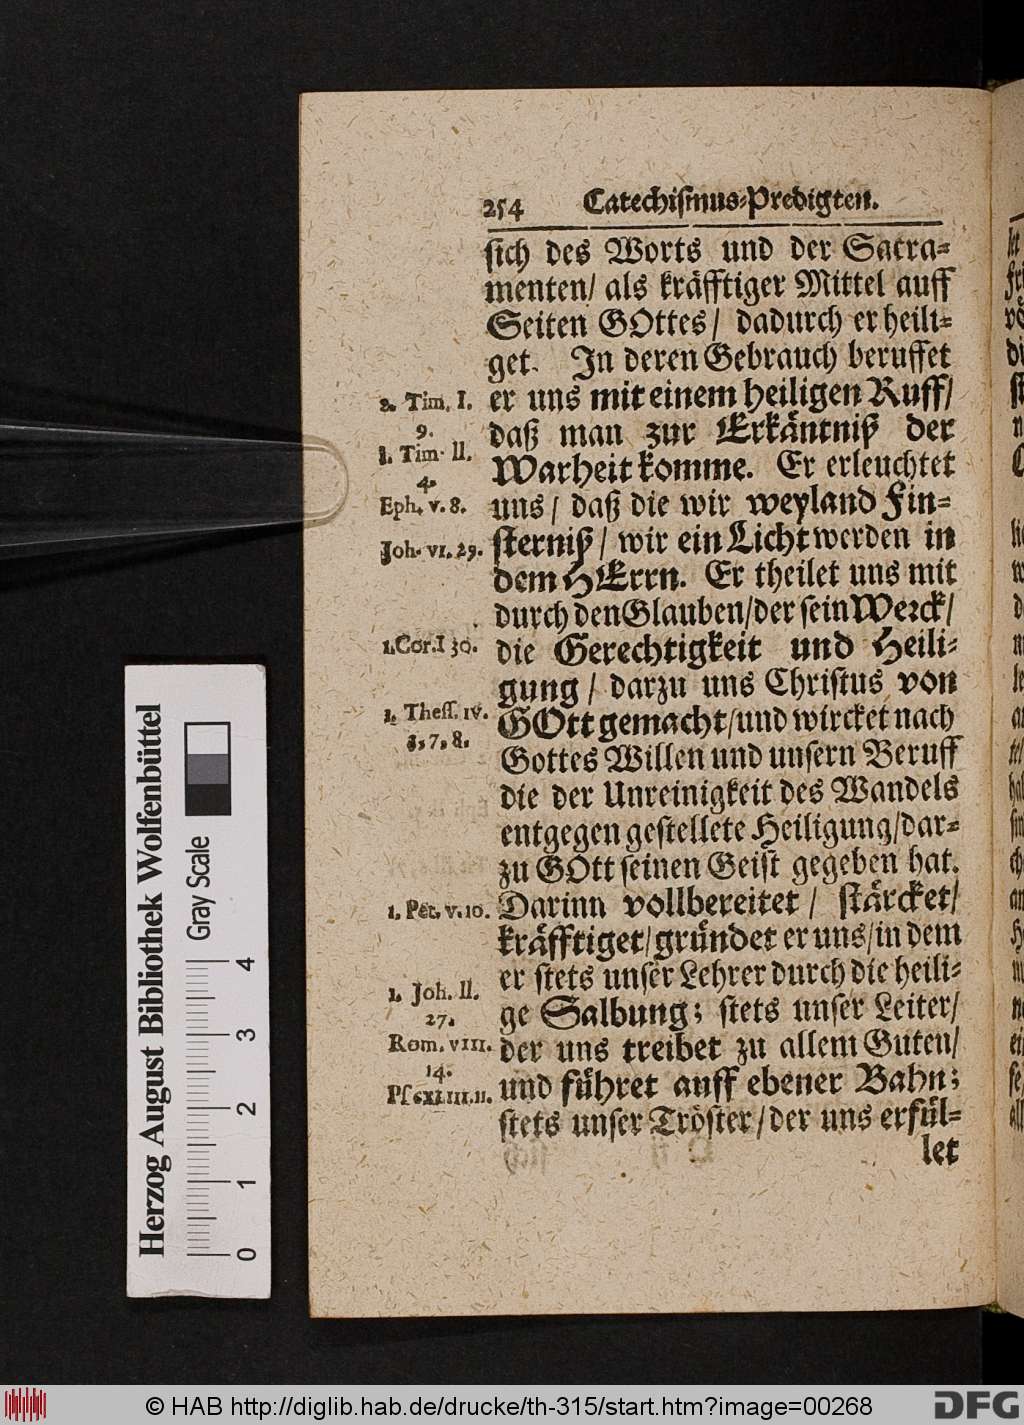 254 Catechismus-Predigten.
sich des Worts und der Sacra-
menten/ als kräfftiger Mittel auff
Seiten GOttes/ dadurch er heili-
get. In deren Gebrauch beruffet
2. Tim. I. er uns mit einem heiligen Ruff/
9. daß man zur Erkäntniß der
1. Tim. II. Warheit komme. Er erleuchtet
4.
Eph. v. 8. uns/ daß die wir weyland Fin-
Joh. VI. 29. sterniß/ wir ein Licht werden in
dem HErrn. Er theilet uns mit
durch den Glauben/ der sein Werck/
1. Cor. I 30. die Gerechtigkeit und Heili-
gung/ darzu uns Christus von
1. Thess. IV. GOtt gemacht/ und wircket nach
3, 7, 8. Gottes Willen und unsern Beruff
die der Unreinigkeit des Wandels
entgegen gestellete Heiligung/ dar-
zu GOtt seinen Geist gegeben hat.
1. Pet. v. 10. Darinn vollbereitet/ stärcket/
kräfftiget/ gründet er uns/ in dem
er stets unser Lehrer durch die heili-
1. Joh. II.
27. ge Salbung; stets unser Leiter/
Rom. VIII. der uns treibet zu allem Guten/
14.
und führet auff ebener Bahn;
stets unser Tröster/ der uns erfül-
let
Herzog August Bibliothek Wolfenbüttel
Gray Scale
0 1 2 3 4
© HAB http://diglib.hab.de/drucke/th-315/start.htm?image=00268
DFG